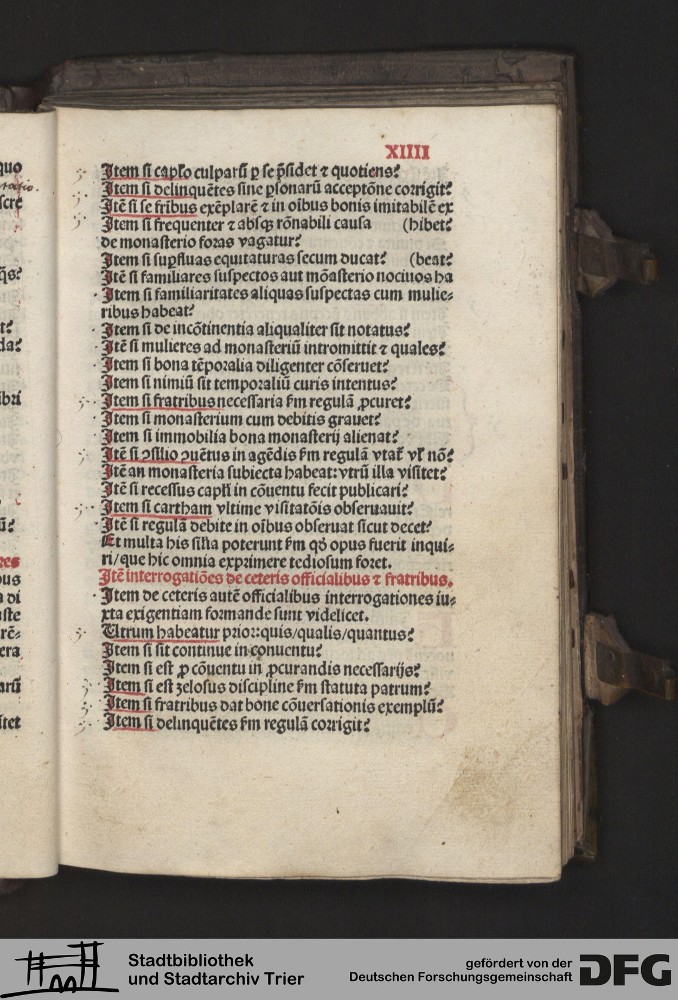 XIIII
Item si capło culparũ p se p̃sidet ⁊ quotiens?
Item si delinquẽtes sine ꝑsonarũ acceptõne corrigit?
Itẽ si se fr̃ibus exẽplarẽ ⁊ in oĩbus bonis imitabilẽ ex
Item si frequenter ⁊ absqꝫ rõnabili causa (hibet?
de monasterio foras vagatur?
Item si suꝑfluas equitaturas secum ducat? (beat?
Itẽ si familiares suspectos aut mõasterio nociuos ha
Item si familiaritates aliquas suspectas cum mulie⸗
ribus habeat?
Item si de incõtinentia aliqualiter sit notatus?
Itẽ si mulieres ad monasteriũ intromittit ⁊ quales?
Item si bona tẽporalia diligenter cõseruet?
Item si nimiũ sit temporaliũ curis intentus?
Item si fratribus necessaria ẜm regulã ꝓcuret?
Item si monasterium cum debitis grauet?
Item si immobilia bona monasterij alienat?
Itẽ si ꝯsilio ꝯuẽtus in agẽdis ẜm regulã vtat᷑ vl̛ nõ?
Itẽ an monasteria subiecta habeat:vtrũ illa visitet?
Itẽ si recessus capłi in cõuentu fecit publicari?
Item si cartham vltime visitatõis obseruauit?
Itẽ si regulã debite in oĩbus obseruat sicut decet?
Et multa his sil̃ia poterunt ẜm qď opus fuerit inqui⸗
ri/que hic omnia exprimere tediosum foret.
Itẽ interrogatiões de ceteris officialibus ⁊ fratribus.
Item de ceteris autẽ officialibus interrogationes iu⸗
xta exigentiam formande sunt videlicet.
Utrum habeatur prior:quis/qualis/quantus?
Item si sit continue in conuentu?
Item si est ꝓ cõuentu in ꝓcurandis necessarijs?
Item si est zelosus discipline ẜm statuta patrum?
Item si fratribus dat bone cõuersationis exemplũ?
Item si delinquẽtes ẜm regulã corrigit?
Stadtbibliothek
und Stadtarchiv Trier
gefördert von der
Deutschen Forschungsgemeinschaft
DFG